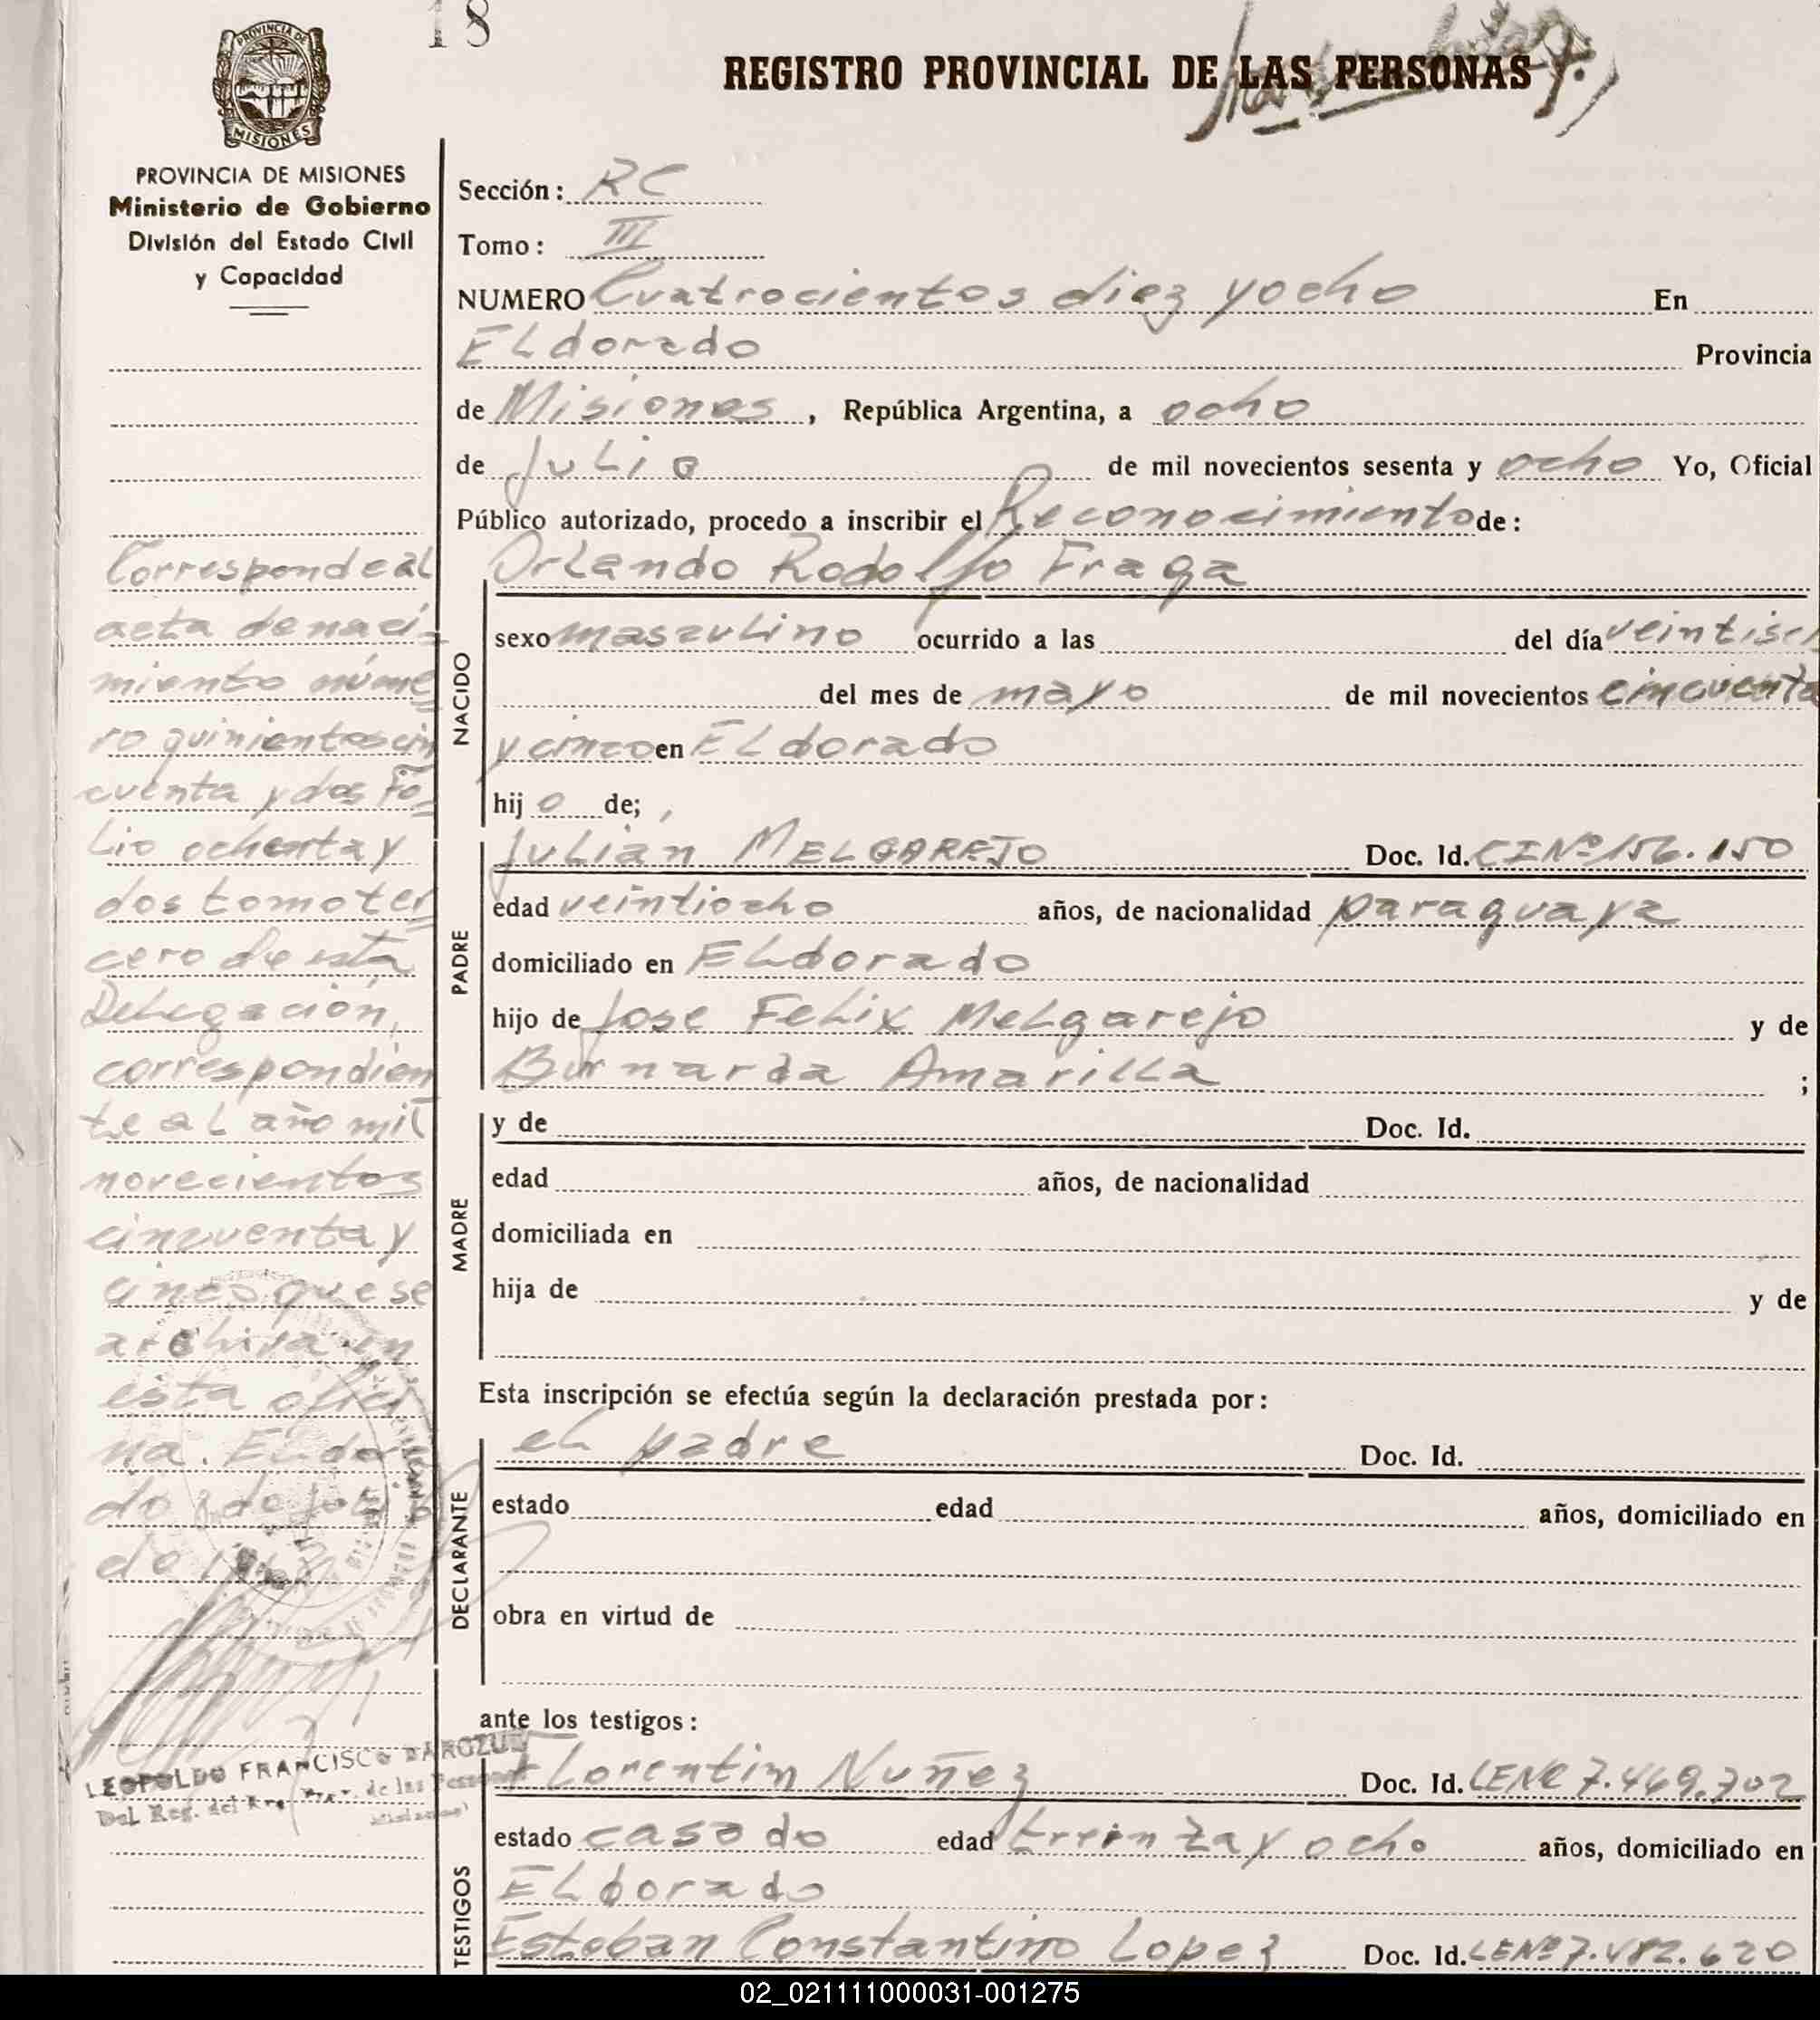 18
REGISTRO PROVINCIAL DE LAS PERSONAS
PROVINCIA DE
MISIONES
PROVINCIA DE MISIONES
Ministerio de Gobierno
División del Estado Civil
y Capacidad
Sección: RC
Tomo: III
NUMERO Cuatrocientos diez y ocho En
ELdorado Provincia
de Misiones, República Argentina, a ocho
de Julio de mil novecientos sesenta y ocho Yo, Oficial
Público autorizado, procedo a inscribir el Reconocimiento de:
Orlando Rodolfo Fraga
NACIDO
sexo masculino ocurrido a las del día
del mes de mayo de mil novecientos cincuenta
y cinco en ELdorado
hijo de; ,
PADRE
Julián MELGAREJO Doc. Id. CI Nº 156.150
edad veintiocho años, de nacionalidad paraguaya
domiciliado en ELdorado
hijo de Jose Felix Melgarejo y de
Bernarda Amarilla ;
MADRE
y de Doc. Id.
edad años, de nacionalidad
domiciliada en
hija de y de
Esta inscripción se efectúa según la declaración prestada por:
DECLARANTE
el padre Doc. Id.
estado edad años, domiciliado en
obra en virtud de
ante los testigos:
TESTIGOS
Florentim Nuñez Doc. Id. LE Nº 7.469.702
estado casado edad treinta y ocho años, domiciliado en
ELdorado
Esteban Constantino Lopez Doc. Id. LE Nº
Corresponde al
acta de naci-
miento núme
ro quinientos cin
cuenta y dos Fo-
lio ochenta y
dos tomo ter
cero de esta
Delegación,
correspondien
te al año mil
novecientos
cincuenta y
cinco que se
archiva en
esta ofici
na.
LEOPOLDO FRANCISCO
02_021111000031-001275